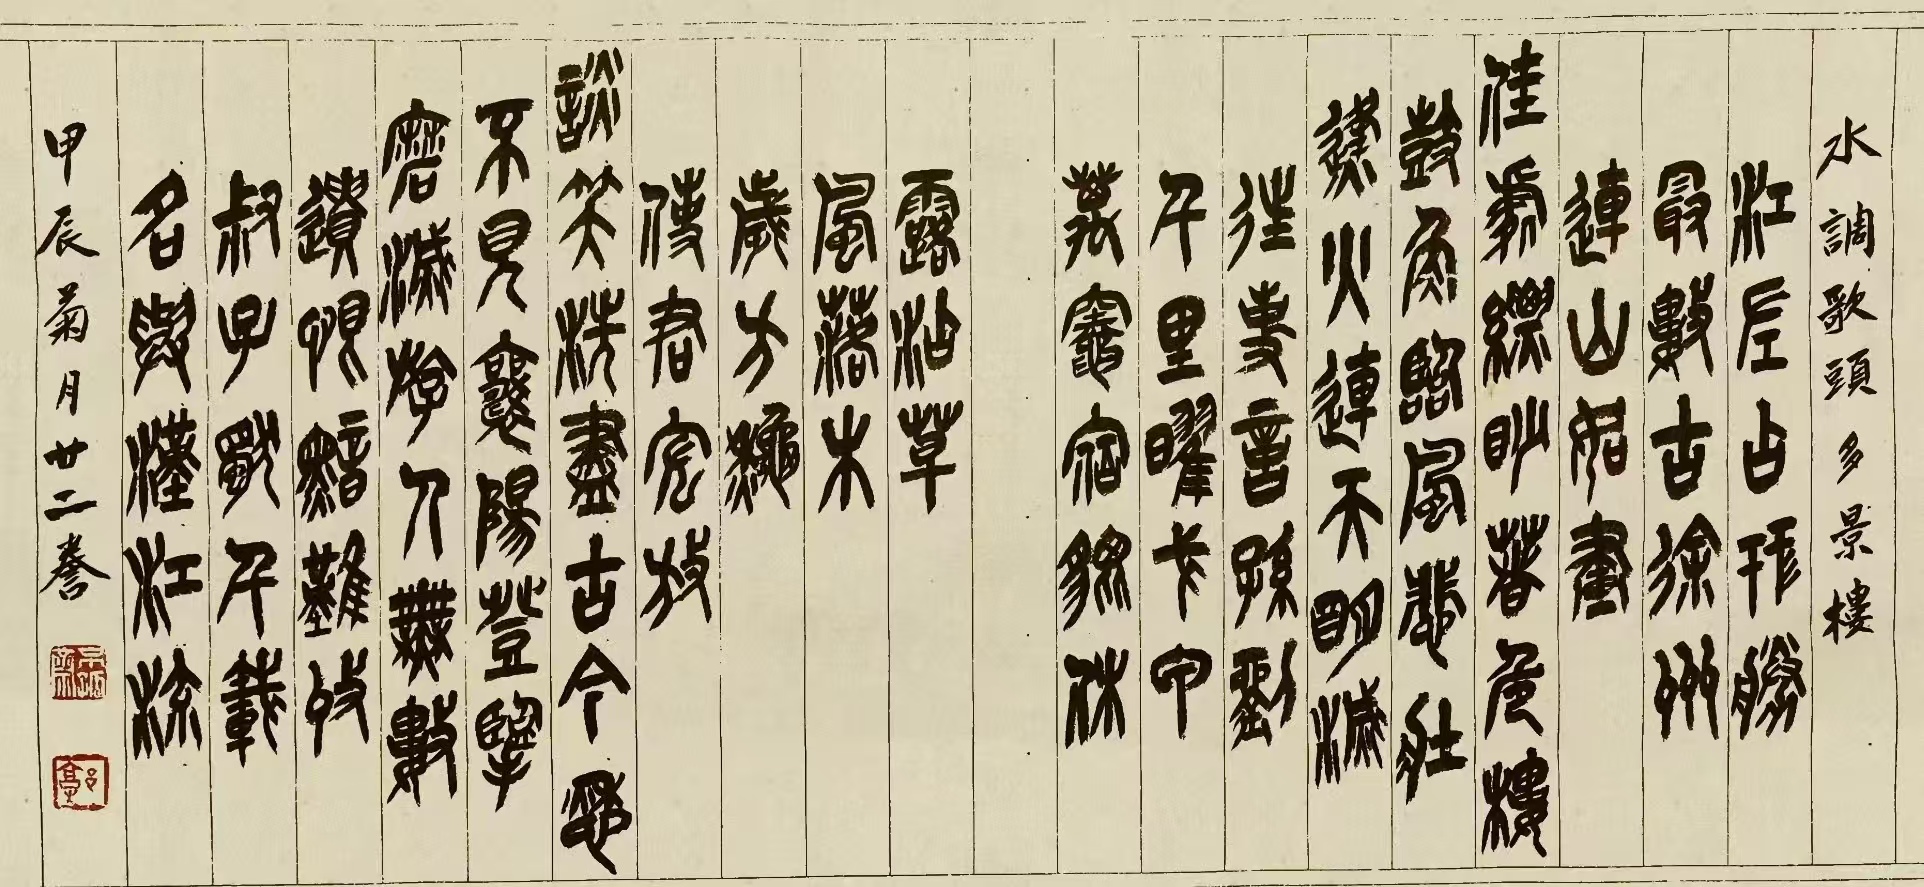 水調歌頭 多景樓
江左占形勝
最數古徐州
連山如畫
佳處縹眇著危樓
鼓角臨風悲壯
烽火連天明滅
往事憶孫劉
千里曜戈甲
萬竈宿貔貅
露沾草
風落木
歲方穐
使君宏放
談笑洗盡古今愁
不見襄陽登擥
磨滅游人無數
遺恨黯難收
叔子獨千載
名與漢江流
甲辰菊月廿二誊